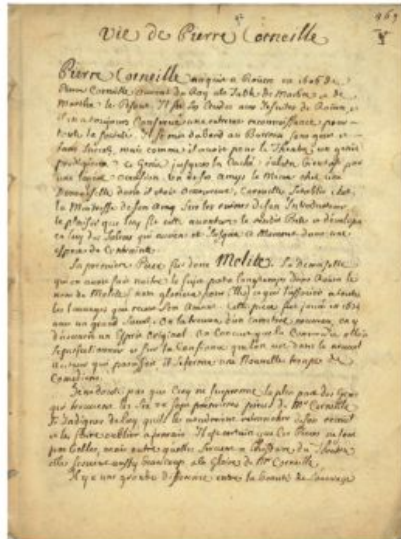 469
Vie de Pierre Corneille
Pierre Corneille naquit a Roüen en 1606 de
Pierre Corneille avocat du Roy a la Table de Marbre, et de
Marthe le Pesant. Il fit ses Etudes aux Jesuites de Roüen, et
il en a toujours Conservé une extreme reconnoissance pour
toute la Societé. Il se mit d'abord au Barreau sans goût et
sans succez, mais comme il avoit pour le Theatre un genie
prodigieux, ce Genie jusques la Caché éclata bientost par
une legere occasion. Un de ses Amys le Mena chez une
Demoiselle dont il étoit amoureux, Corneille
la Maitresse de son Amy
le plaisir que luy fit cette avanture
en luy des Talens qui
espece de Contrainte
La premiere Piece fut donc Melite. La demoiselle
qui en avoit fait naitre le sujet porta longtemps dans Roüen le
nom de Melite, nom glorieux pour Elle, et qui l'associoit a toutes
les loüanges que reçut son Amant. Cette piece fut joüée en 1625
avec un grand Succez. On la trouva d'un Caractere nouveau, on y
découvrit un Esprit original. On Conçut que la Comedie alloit
se perfectionner et sur la Confiance qu'on eut dans le nouvel
auteur qui paroissoit il se forma une Nouvelle troupe de
Comediens.
Je ne doute pas que Cecy ne surprenne la plus part des Gens
qui trouvent les Six ou Sept premieres pieces de Mr Corneille
Si Indignes de luy, qu'ils les voudroient retrancher de son recueil
et les faire oublier a jamais. Il est certain que Ces Pieces ne sont
pas belles, mais outre quelles servent a l'histoire du Theatre
elles servent aussy beaucoup a la Gloire de Mr Corneille.
Il y a une grande difference entre la beauté de l'ouvrage